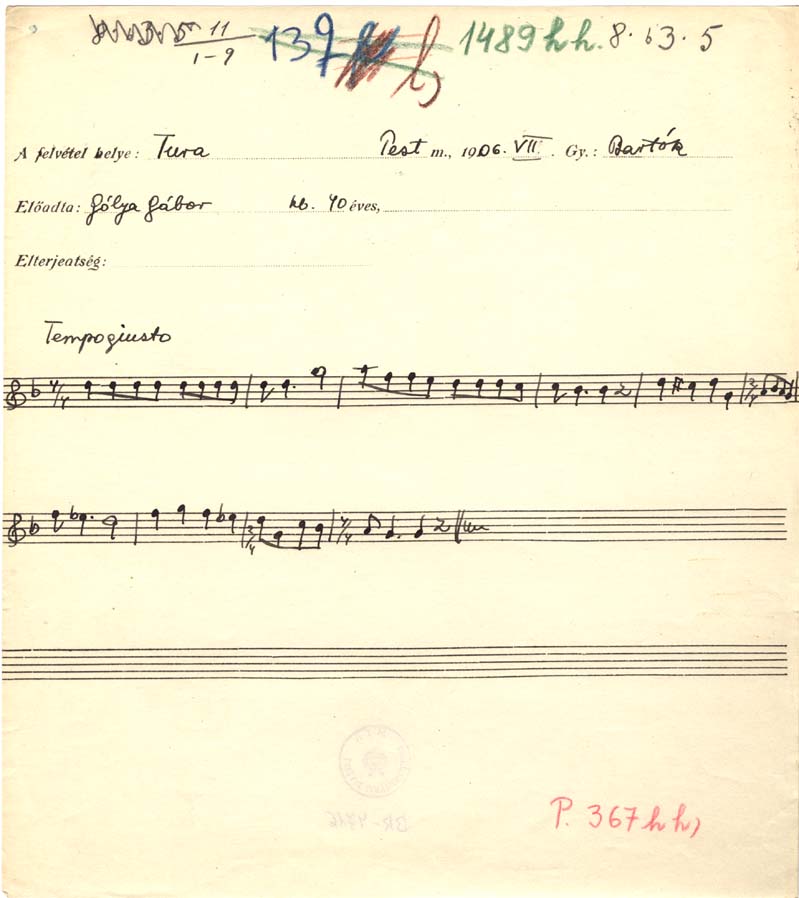 11
1-9
137 h) 1489 h h. 8. 63. 5
A felvétel helye: Tura Pest m., 1906. VII. Gy.: Bartók
Előadta: Gólya Gábor kb. 40 éves,
Elterjeatség:
Tempo giusto
4/4
2/4
2/4
4/4
BR-4716
P. 367 h h)